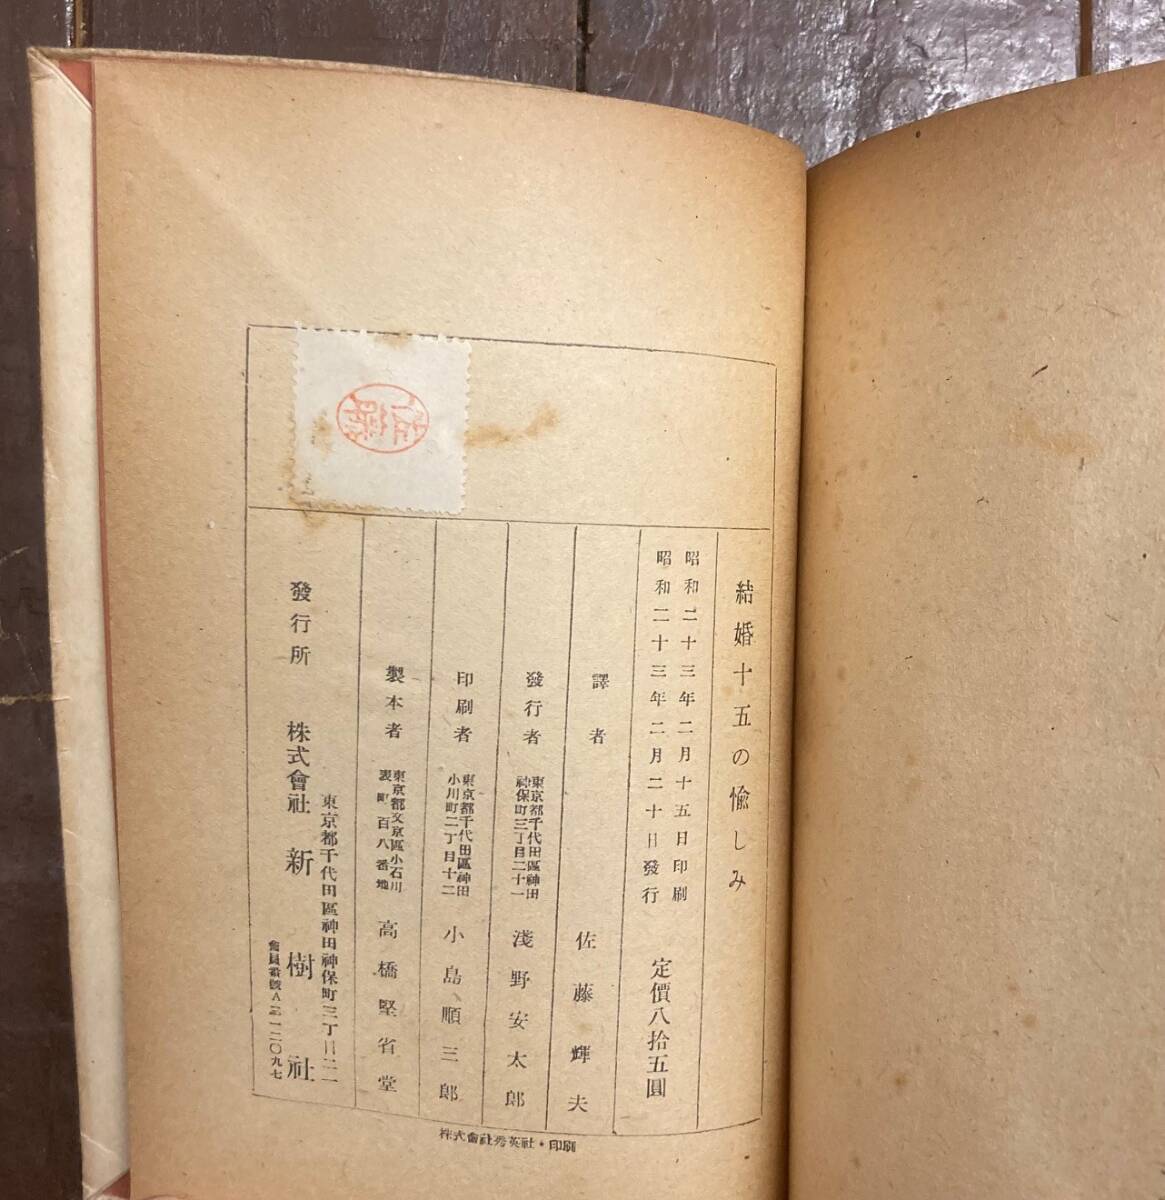 結婚十五の愉しみ
昭和二十三年二月十五日印刷
昭和二十三年二月二十日發行
定價八拾五圓
譯者 佐藤輝夫
發行者 東京都千代田區神田
神保町三丁目二十一
淺野安太郎
印刷者 東京都千代田區神田
小川町二丁目十二
小島順三郎
製本者 東京都文京區小石川
表町百八番地
高橋堅省堂
東京都千代田區神田神保町三丁目二一
發行所 株式會社 新樹社
會員番號A二一二〇九七
株式會社秀英社・印刷
佐藤